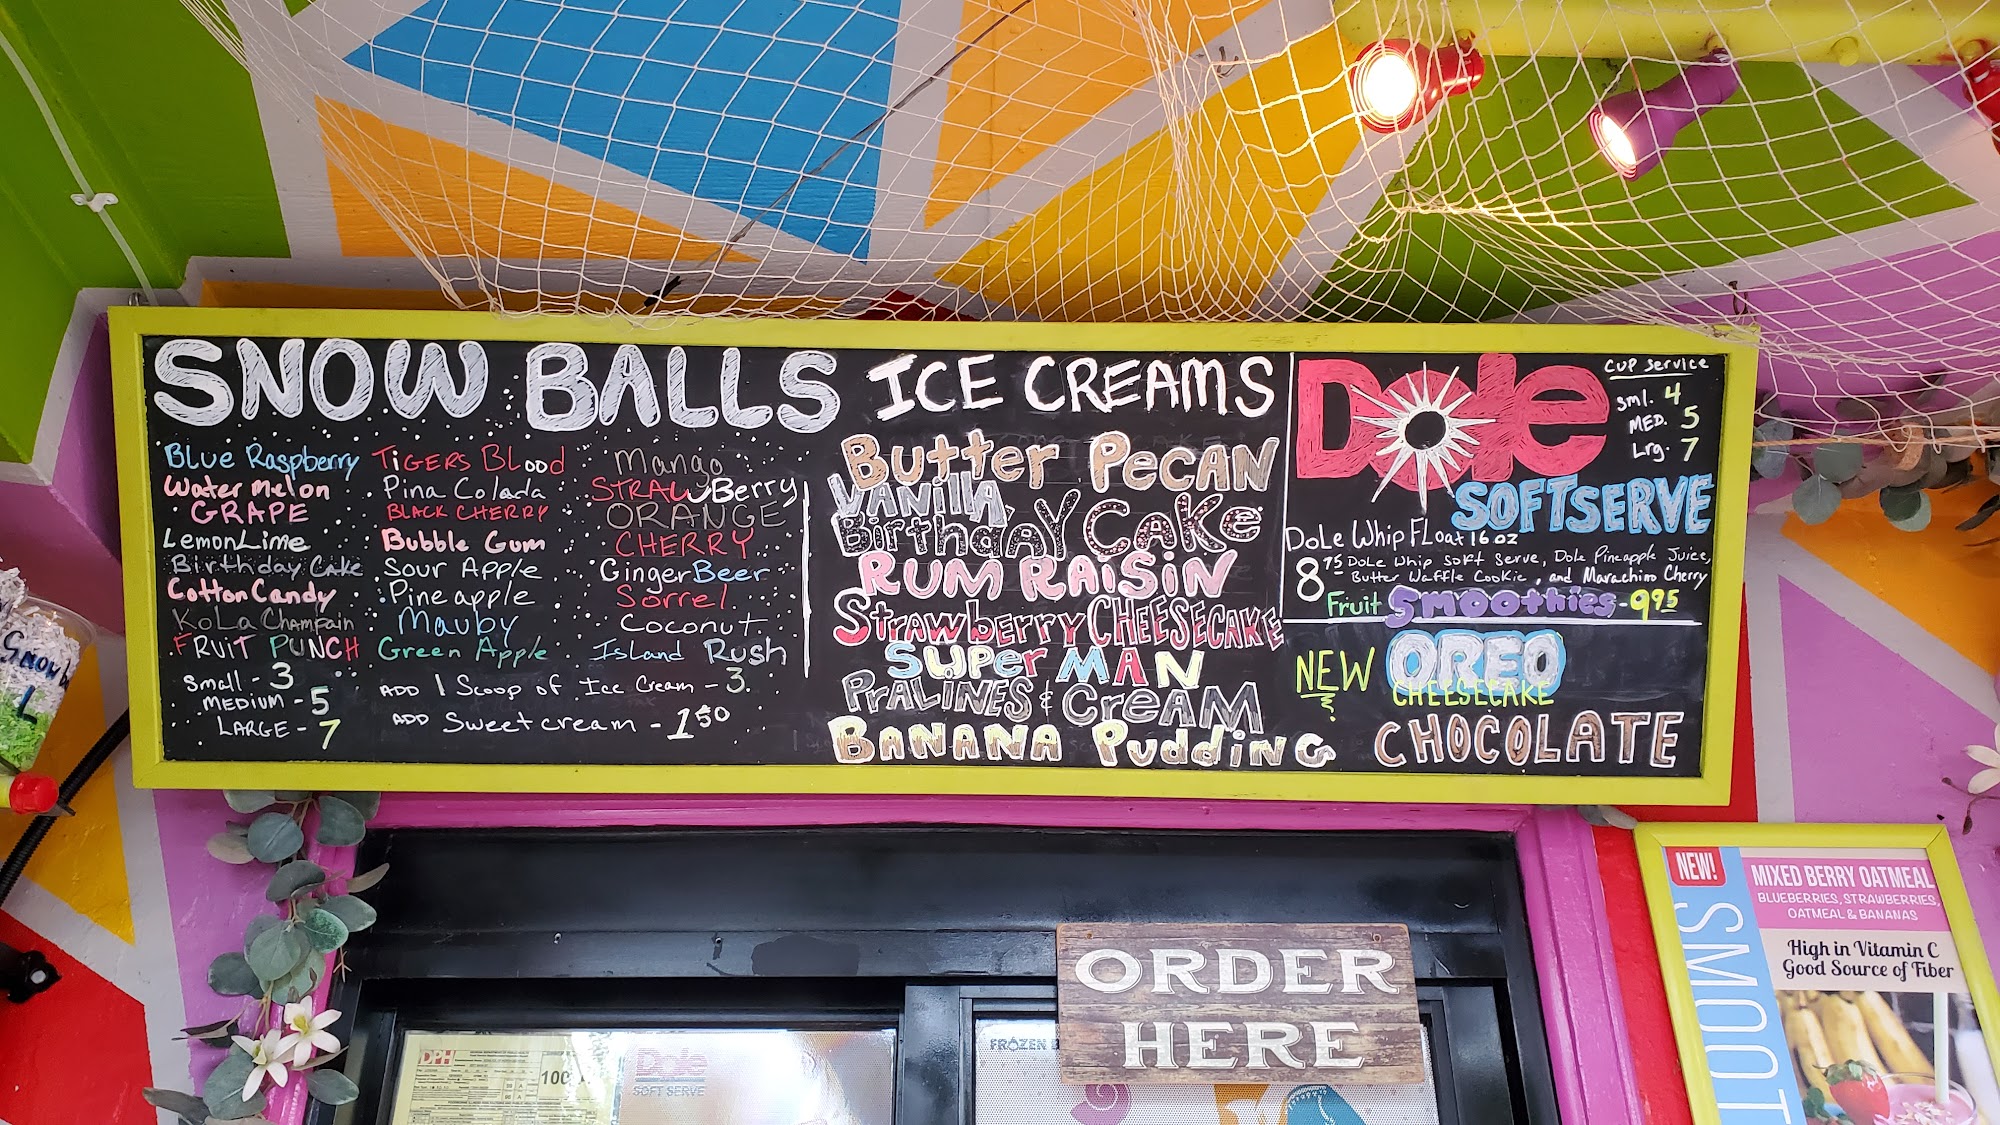 SNOW BALLS
Blue Raspberry
Water melon
GRAPE
LemonLime
Birthday Cake
Cotton Candy
KoLa Champain
FRUIT PUNCH
TiGERS BLood
Pina Colada
BLACK CHERRY
Bubble Gum
Sour Apple
Pineapple
Mauby
Green Apple
Mango
STRAWBerry
ORANGE
CHERRY
Ginger Beer
Sorrel
Coconut
Island Rush
Small - 3
MEDIUM - 5
LARGE - 7
ADD 1 Scoop of Ice Cream - 3
ADD Sweetcream - 1 50
ICE CREAMS
Butter Pecan
Vanilla
Birthday Cake
RUM RAiSiN
Strawberry CHEESECAKE
SUPer MAN
PrALINES & CreAM
BANANA Pudding
Dole
SOFTSERVE
CUP Service
Sml. 4
MED. 5
Lrg. 7
DoLe Whip FLoat 16 oz
8 75 Dole Whip Soft Serve, Dole Pineapple Juice,
Butter Waffle Cookie, and Marachino Cherry
Fruit Smoothies - 9 95
NEW OREO
CHEESECAKE
CHOCOLATE
Snow
ORDER
HERE
NEW!
SMOOT
MIXED BERRY OATMEAL
BLUEBERRIES, STRAWBERRIES,
OATMEAL & BANANAS
High in Vitamin C
Good Source of Fiber
DPH
100
Dole
SOFT SERVE
FROZEN